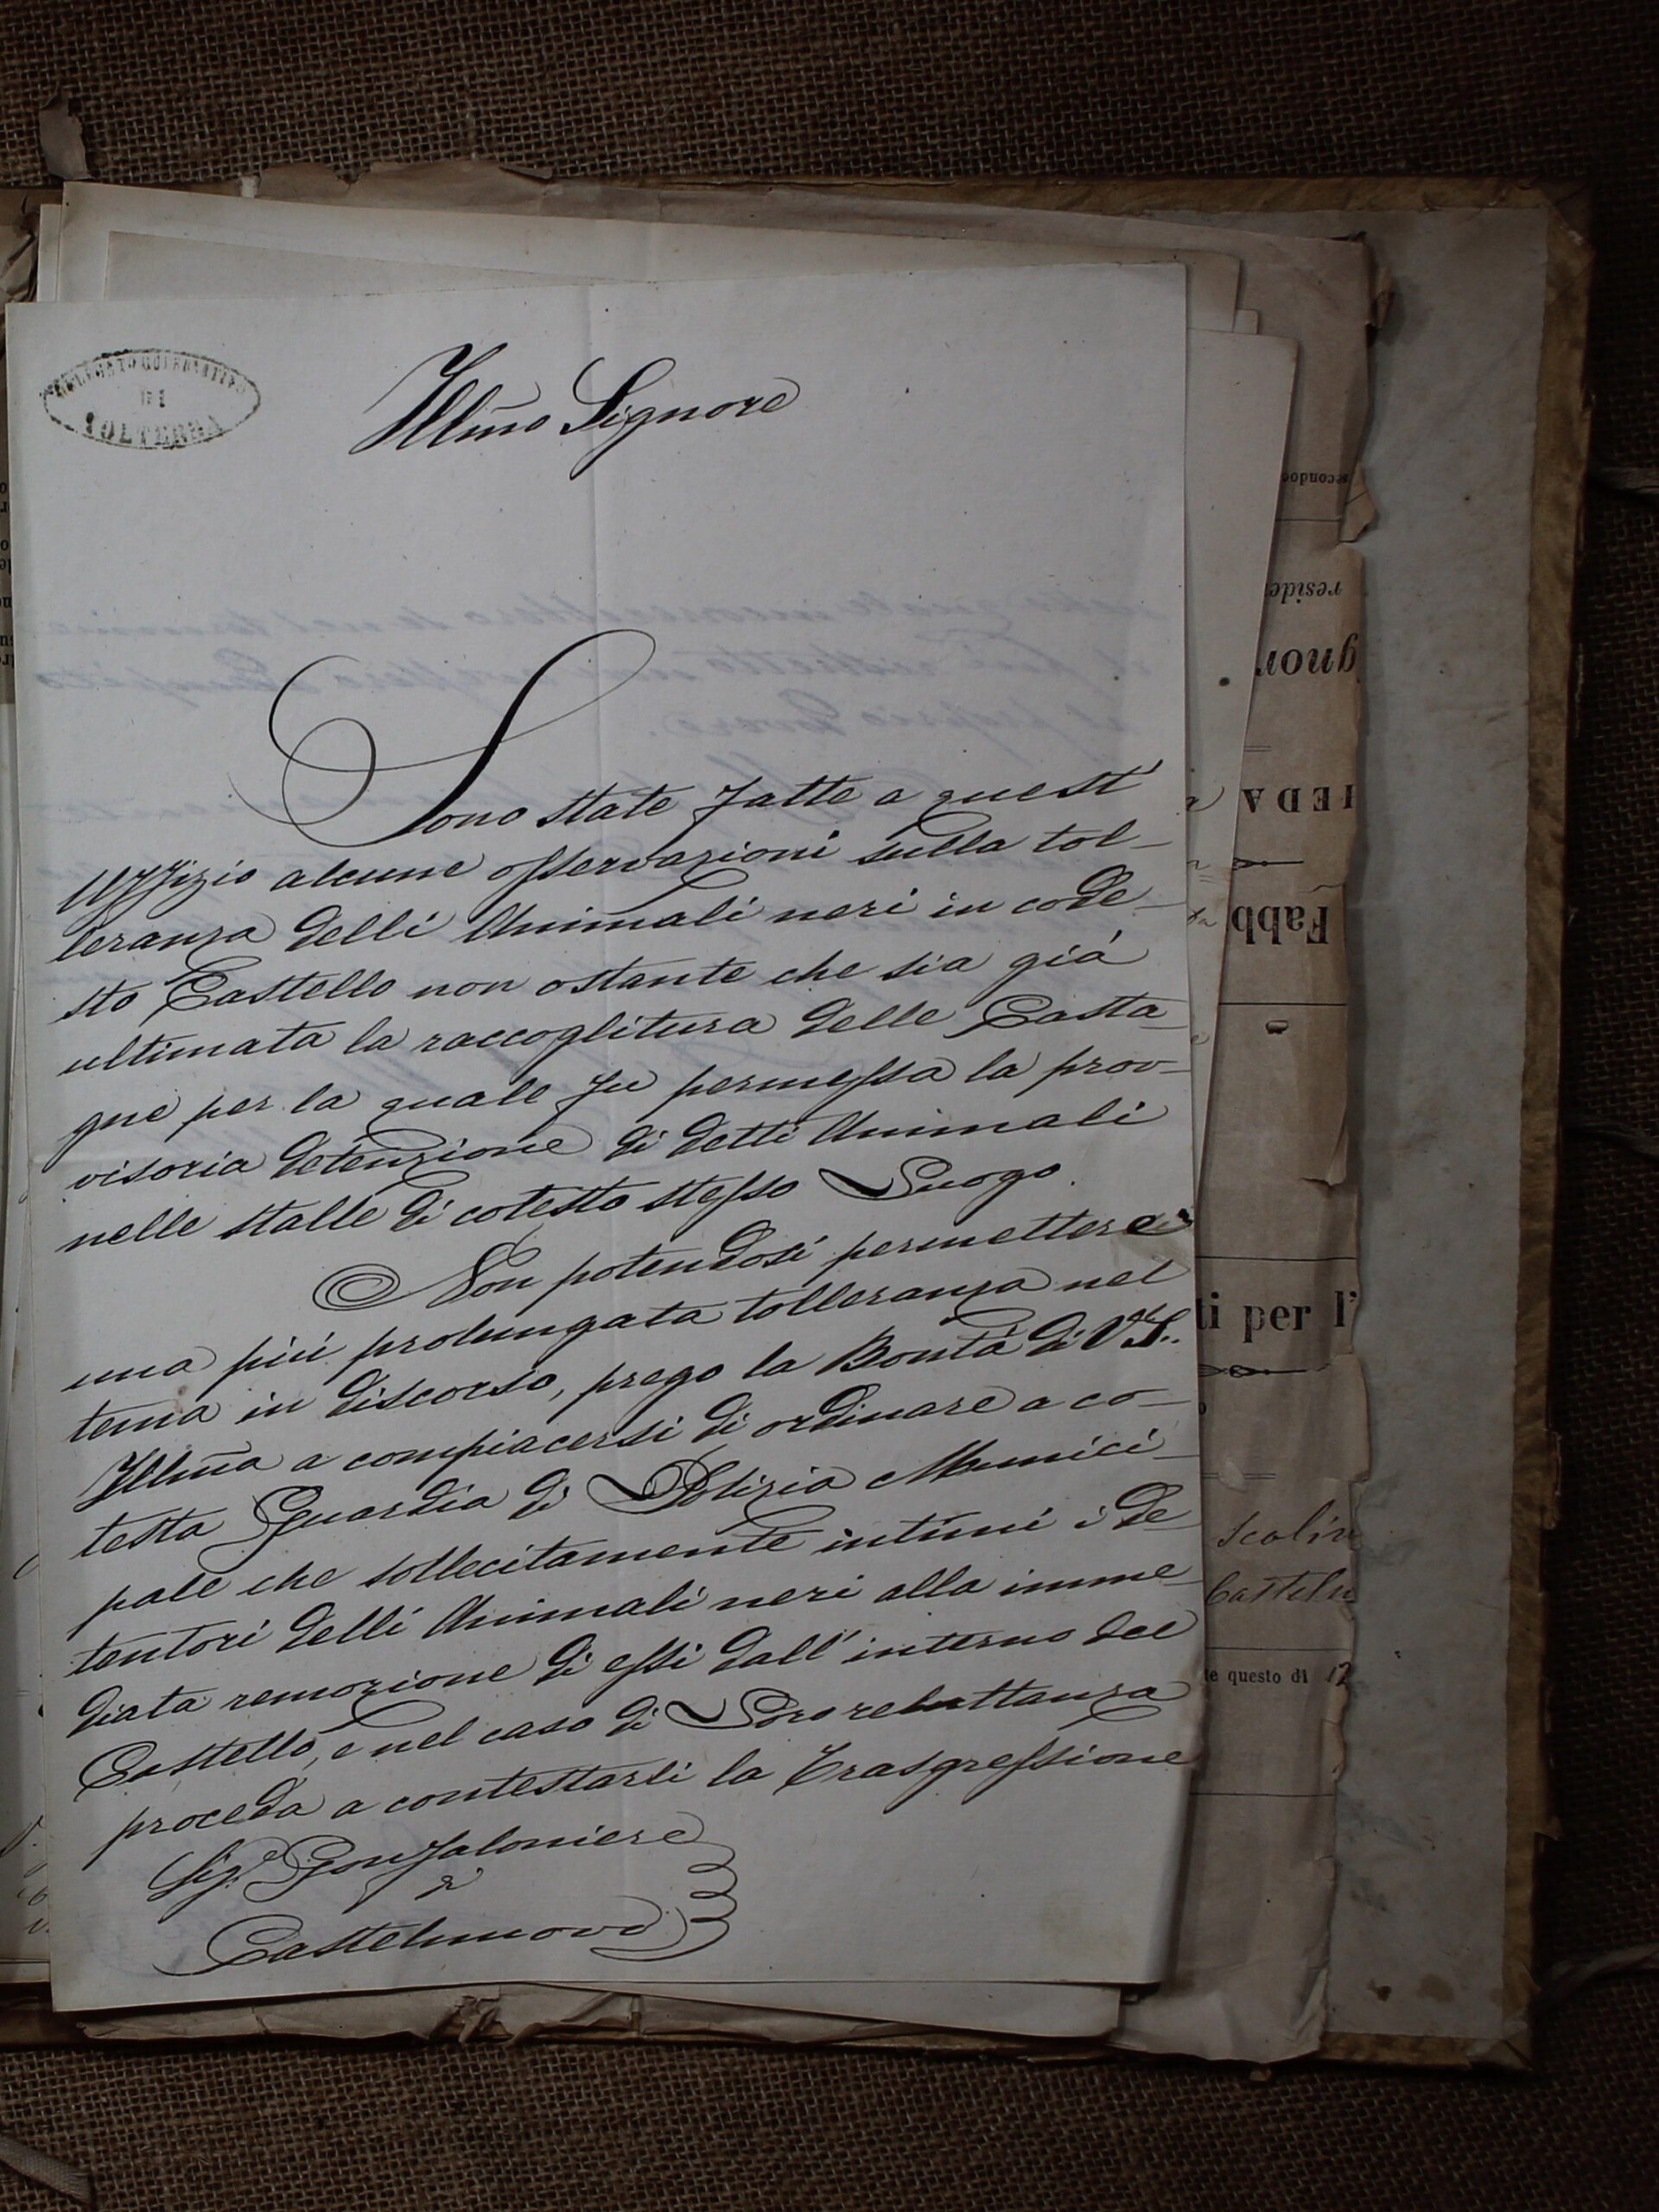 DELEGATO GOVERNATIVO
DI
VOLTERRA
Illm̃o Signore
Sono state fatte a quest'
Uffizio alcune osservazioni sulla tol-
leranza delli Animali neri in code-
sto Castello non ostante che sia già
ultimata la raccoglitura delle Casta-
gne per la quale fu permessa la prov-
visoria detenzione di detti Animali
nelle stalle di cotesto stesso Luogo.
Non potendosi permettere
una più prolungata tolleranza nel
tema in discorso, prego la Bontà di V.S.
Illm̃a a compiacersi di ordinare a co-
testa Guardia di Polizia Munici-
pale che sollecitamente intimi i de-
tentori delli Animali neri alla imme-
diata remozione di essi dall'interno del
Castello, e nel caso di Loro reluttanza
proceda a contestarli la Trasgressione
Sig.e Gonfaloniere
di
Castelnuovo
secondoc
reside
gnor
FEDA
Fabb
ti per l'
Scolin
Casteln
te questo di 12